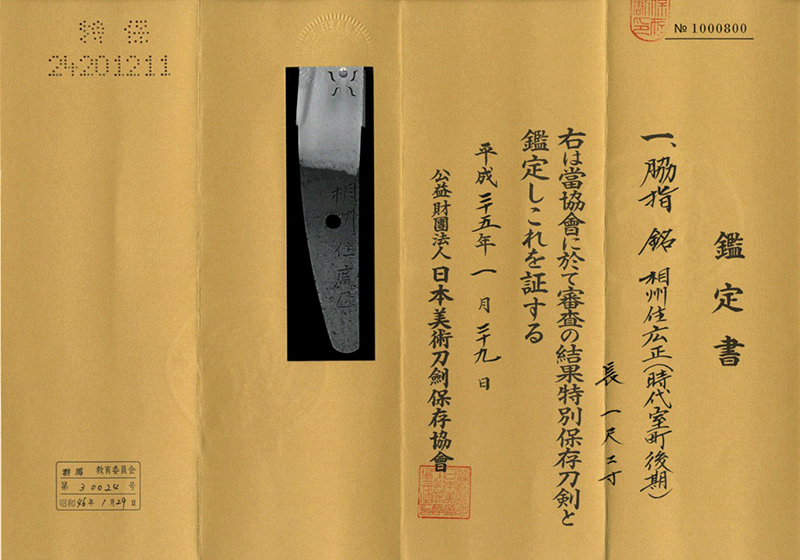 № 1000800
鑑定書
一、脇指 銘 相州住広正(時代室町後期)
長 一尺二寸
右は當協會に於て審査の結果特別保存刀剣と
鑑定しこれを証する
平成二十五年一月二十九日
公益財團法人 日本美術刀劍保存協會
相州住廣正
特保
24201211
群馬 教育委員会
第 30024 号
昭和46年1月29日